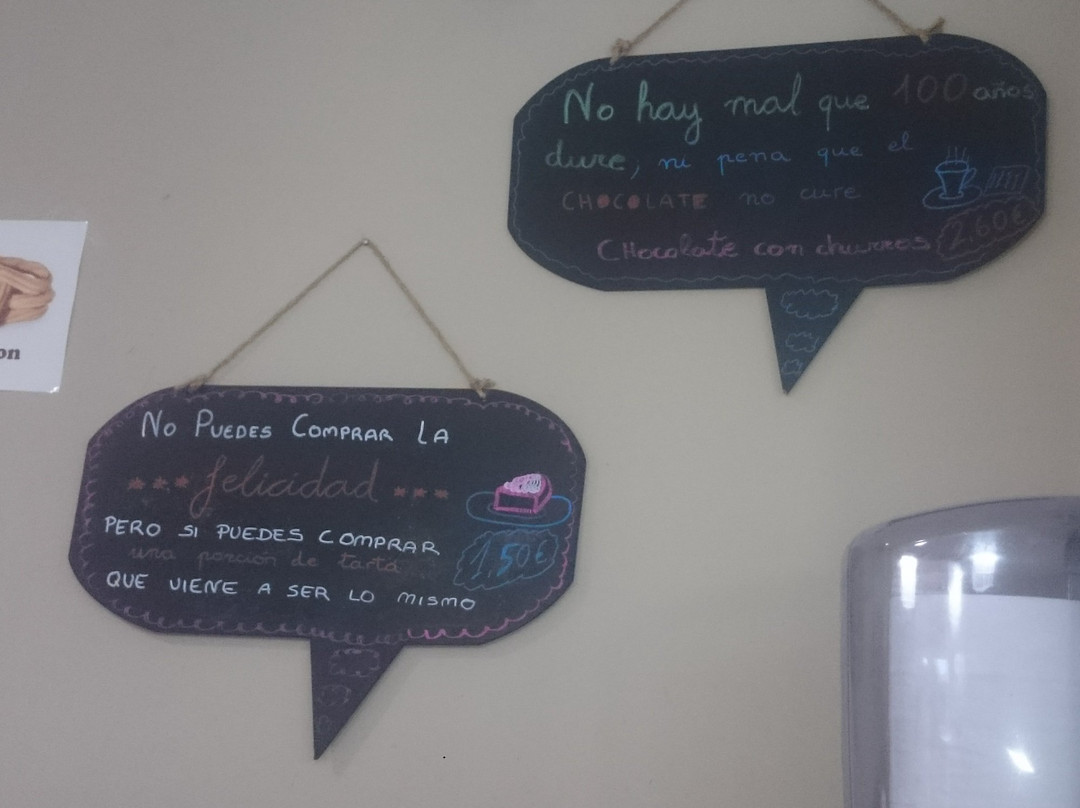 No hay mal que 100 años
dure, ni pena que el
CHOCOLATE no cure
CHocolate con churros 2,60€
on
No PUEDES COMPRAR LA
felicidad
PERO SI PUEDES COMPRAR
una porción de tarta
1,50€
QUE VIENE A SER LO MISMO